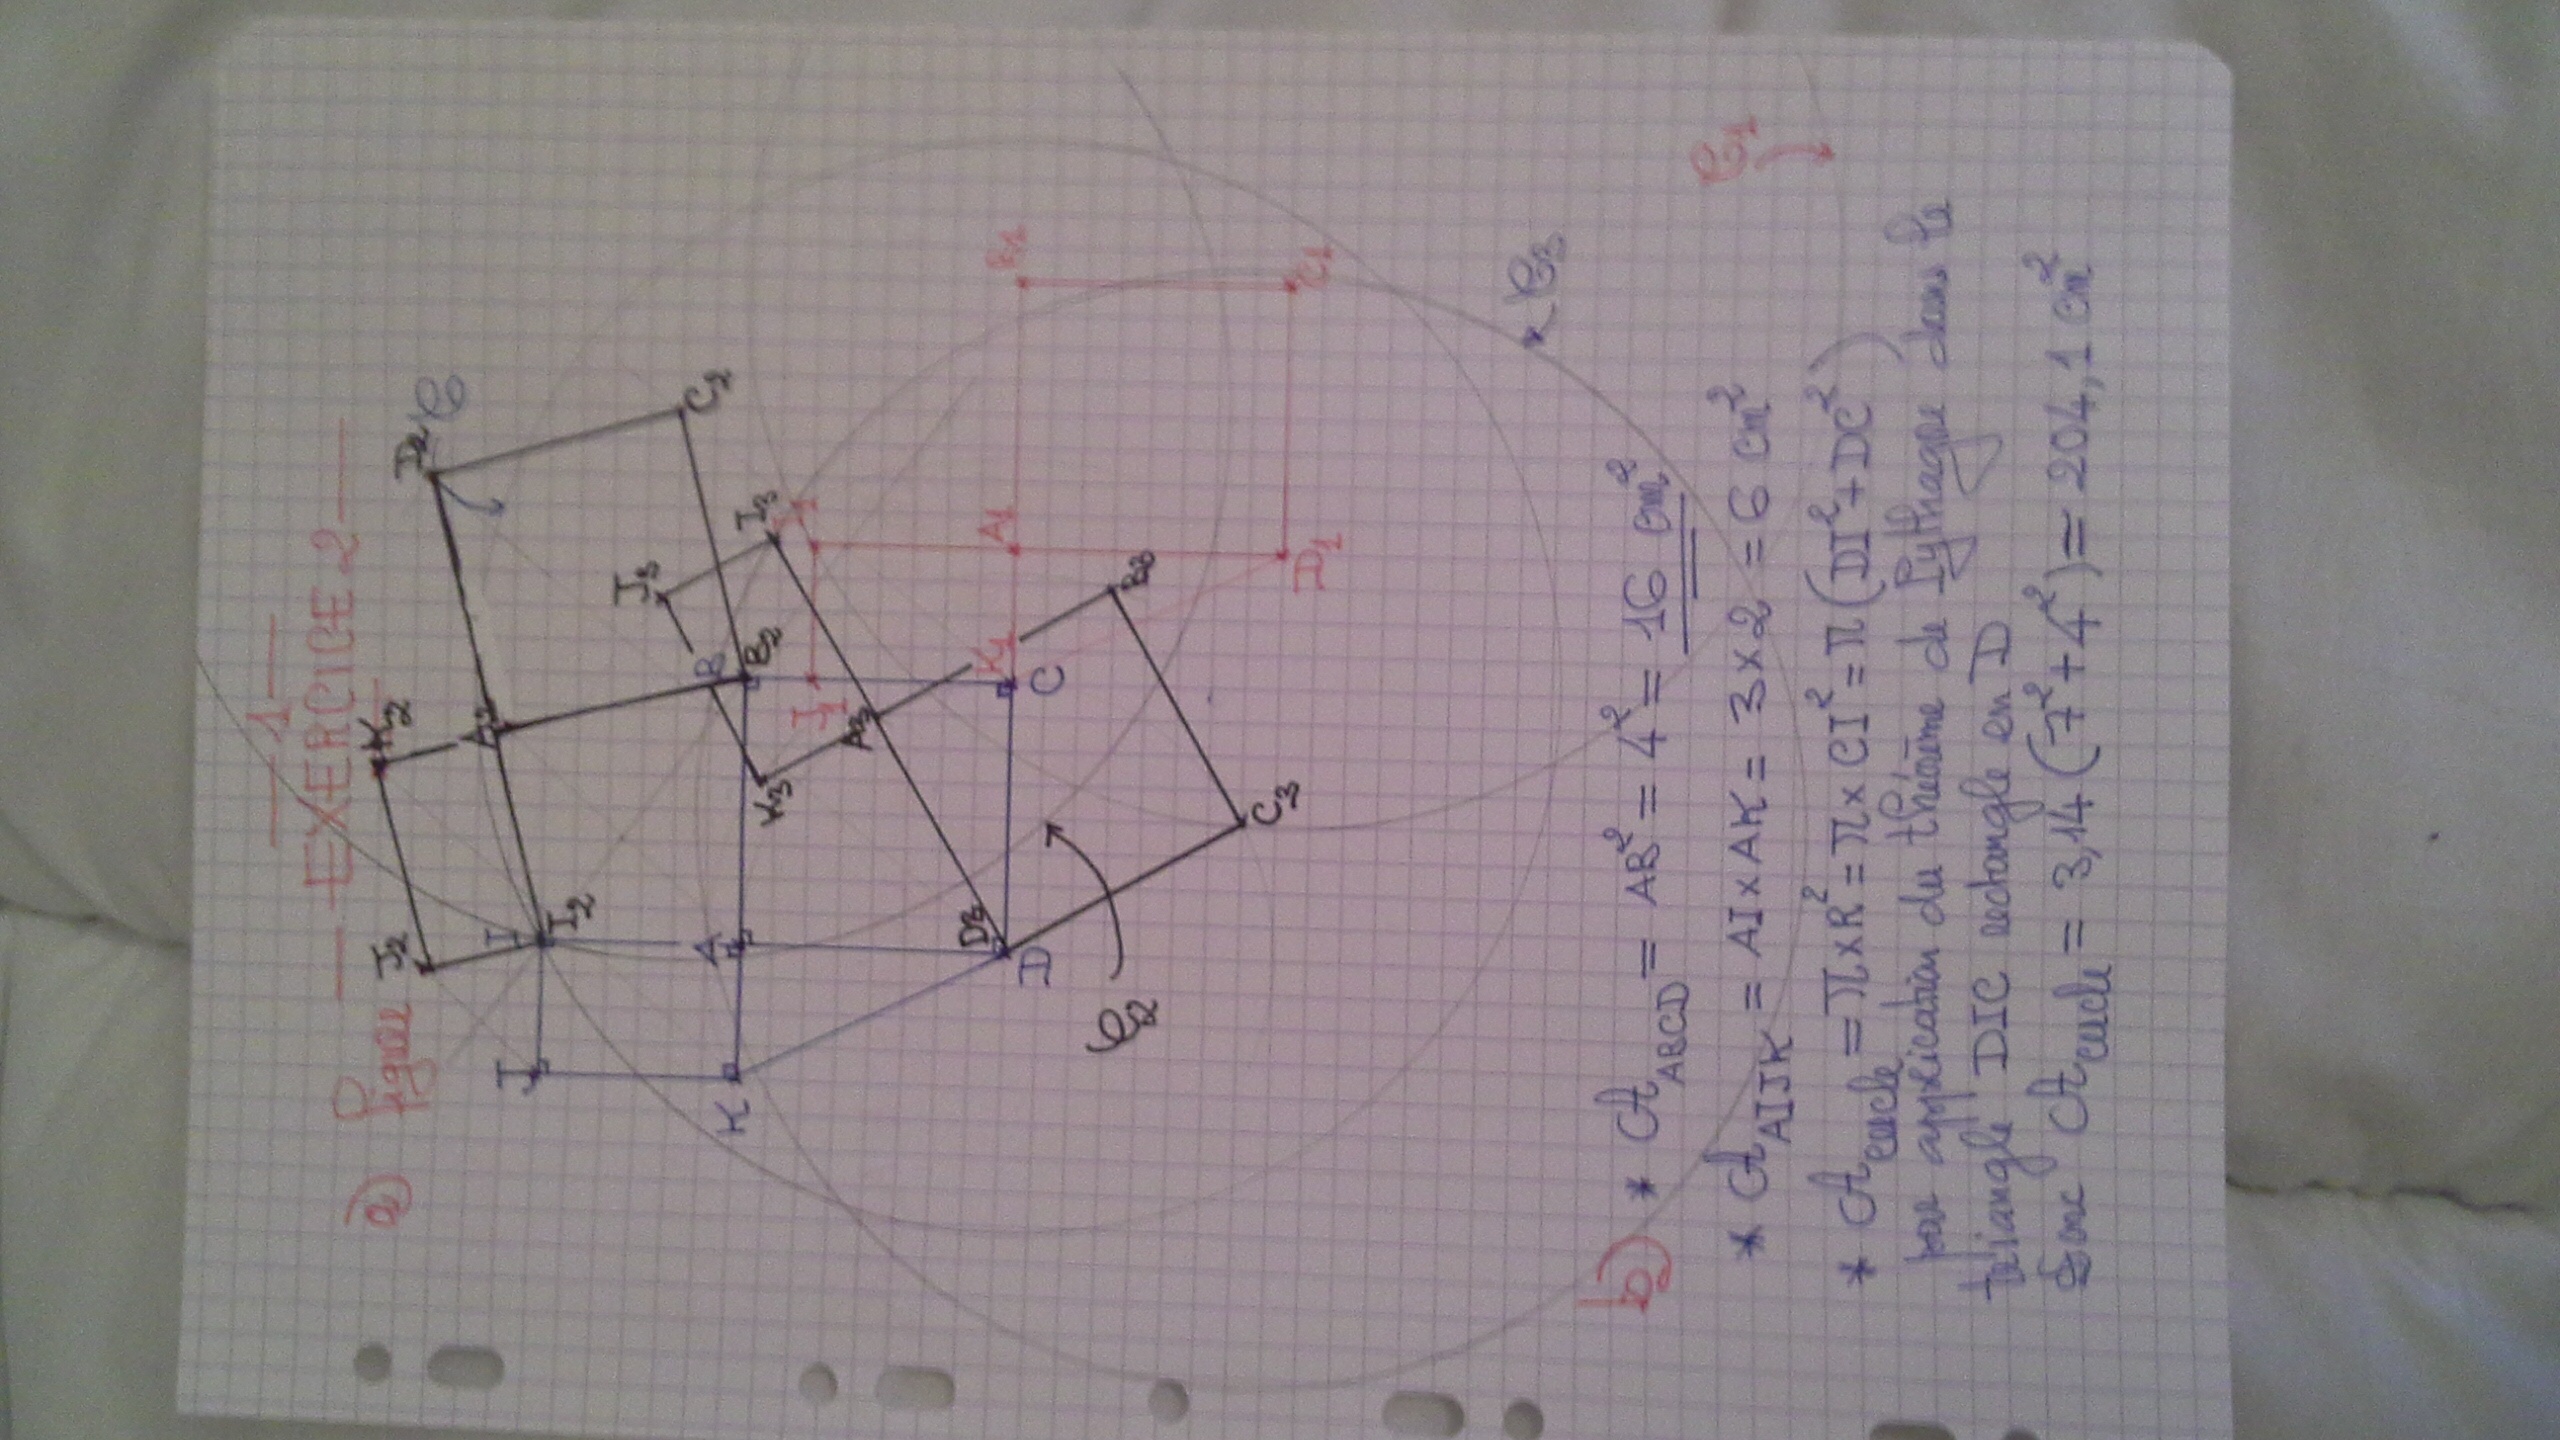 -1-
- EXERCICE 2 -
a) figure
K2
D2
C
J2
A2
C2
I
I2
J3
I3
J
B
B2
J1
I1
A
K3
A3
K
K1
A1
B1
D3
D
C
B3
C3
D1
C1
C2
C3
C1
b) * A ABCD = AB² = 4² = 16 cm²
* A AIJK = AI x AK = 3 x 2 = 6 cm²
* A cercle = π x R² = π x CI² = π (DI² + DC²)
par application du théorème de Pythagore dans le
triangle DIC rectangle en D
Donc A cercle = 3,14 (7² + 4²) = 204,1 cm²